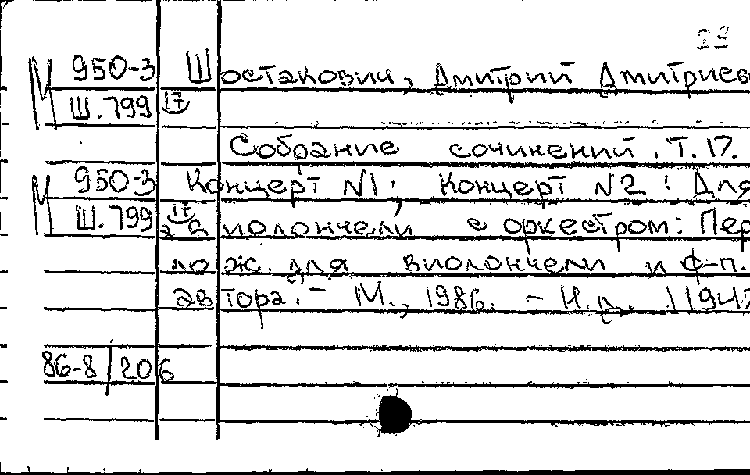 29
М 950-3 Шостакович, Дмитрий Дмитриев
Ш.799 17
Собрание сочинений. Т.17.
М 950-3 Концерт N1; Концерт N2: Для
Ш.799 17 виолончели с оркестром: Пер
лож. для виолончели и ф-п.
автора. - М., 1986. - Н.п. 11947
86-8/206